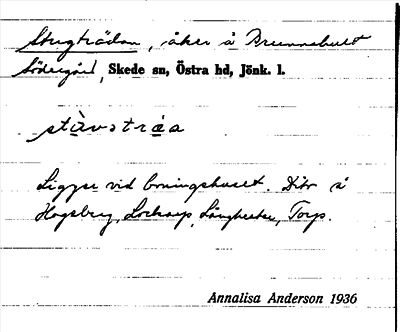 Stugträdan, åker å Brunnshult
Södergård, Skede sn, Östra hd, Jönk. l.
stùvɘtràa
Ligger vid boningshuset. Dito å
Hagsberg, Lockarp, Torp.
Annalisa Anderson 1936